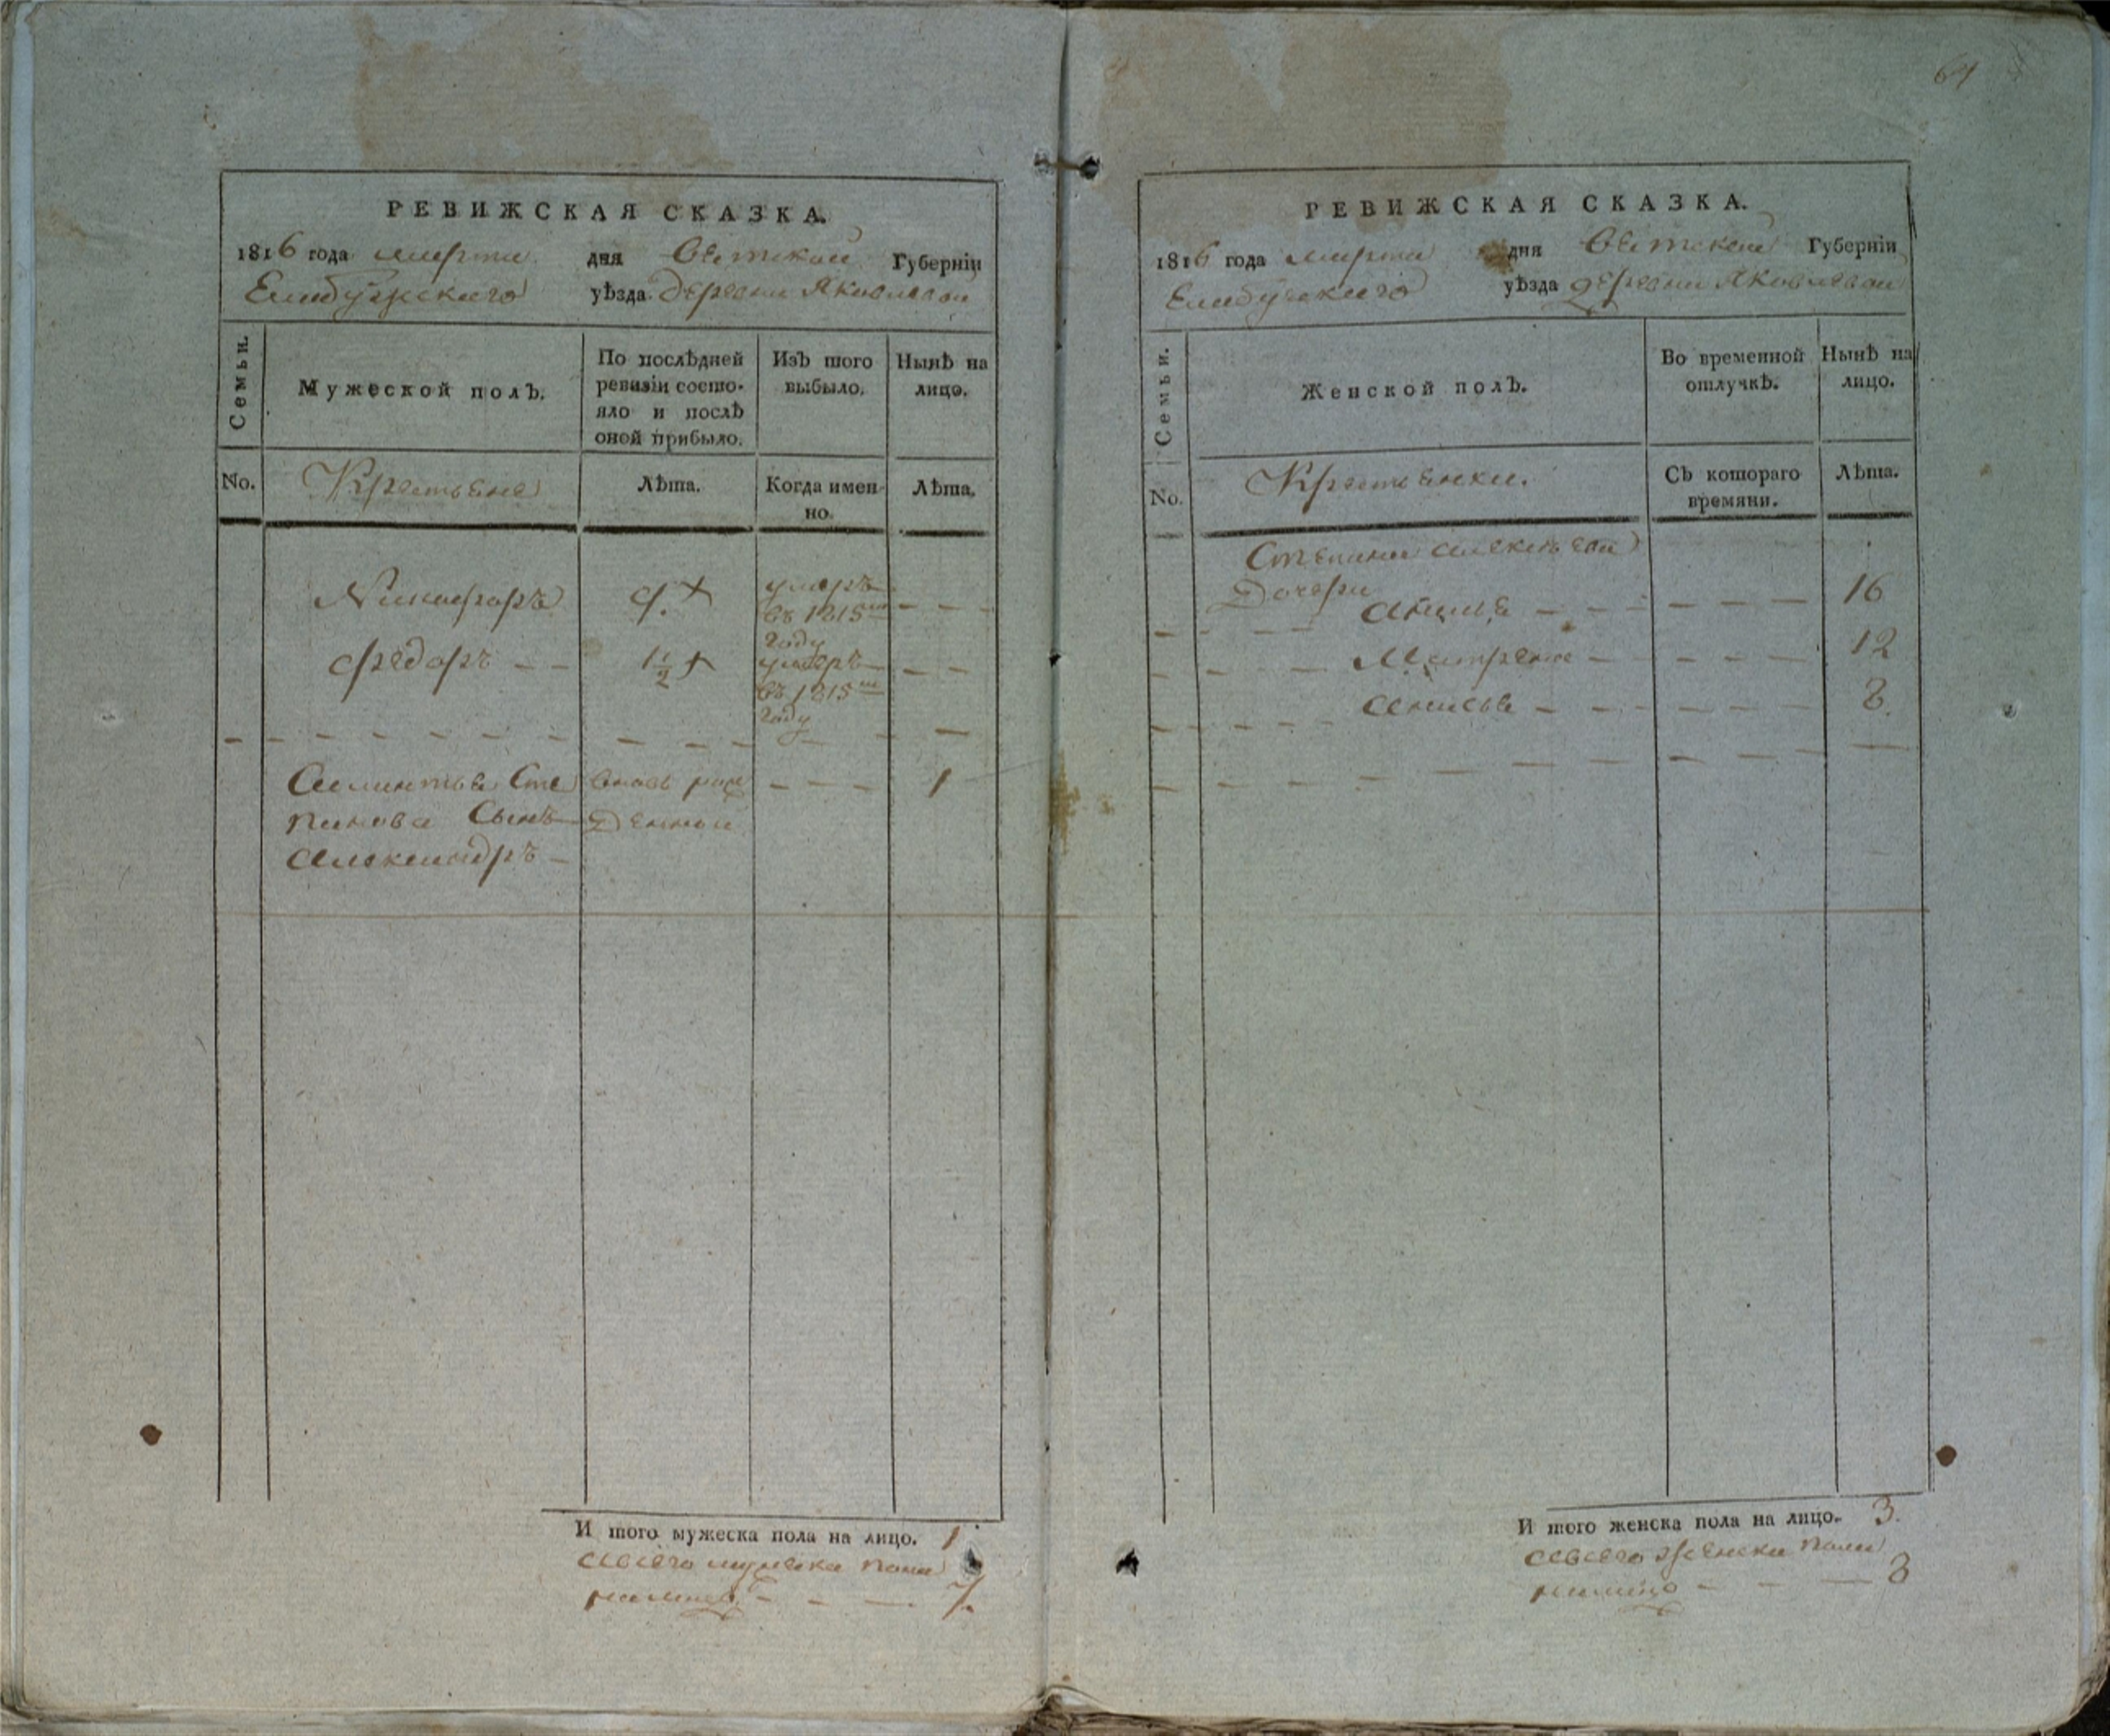 РЕВИЖСКАЯ СКАЗКА.
1816 года марта дня Вятской Губерніи
Елабужскаго уѣзда деревни Яковлевой
Семьи.
Мужеской полъ.
По послѣдней ревизіи состояло и послѣ оной прибыло.
Изъ того выбыло.
Нынѣ на лицо.
No.
Крестьяне
Лѣта.
Когда именно.
Лѣта.
Никифоръ
умеръ въ 1815м году
Федоръ — — 1 1/2 +
умеръ въ 1815м году
Сте
панова Сынъ
Александръ —
вновь рож
денной
1
И того мужеска пола на лицо. 1
а всего мужеска пола
налицо — — — 7.
64
РЕВИЖСКАЯ СКАЗКА.
1816 года марта дня Вятской Губерніи
Елабужскаго уѣзда деревни Яковлевой
Семьи.
Женской полъ.
Во временной отлучкѣ.
Нынѣ на лицо.
No.
Крестьянки.
Съ котораго времяни.
Лѣта.
Степана Алексѣева
Дочери
16
Матрена 12
Анисья 8
И того женска пола на лицо. 3.
а всего женска пола
налицо — — — 8